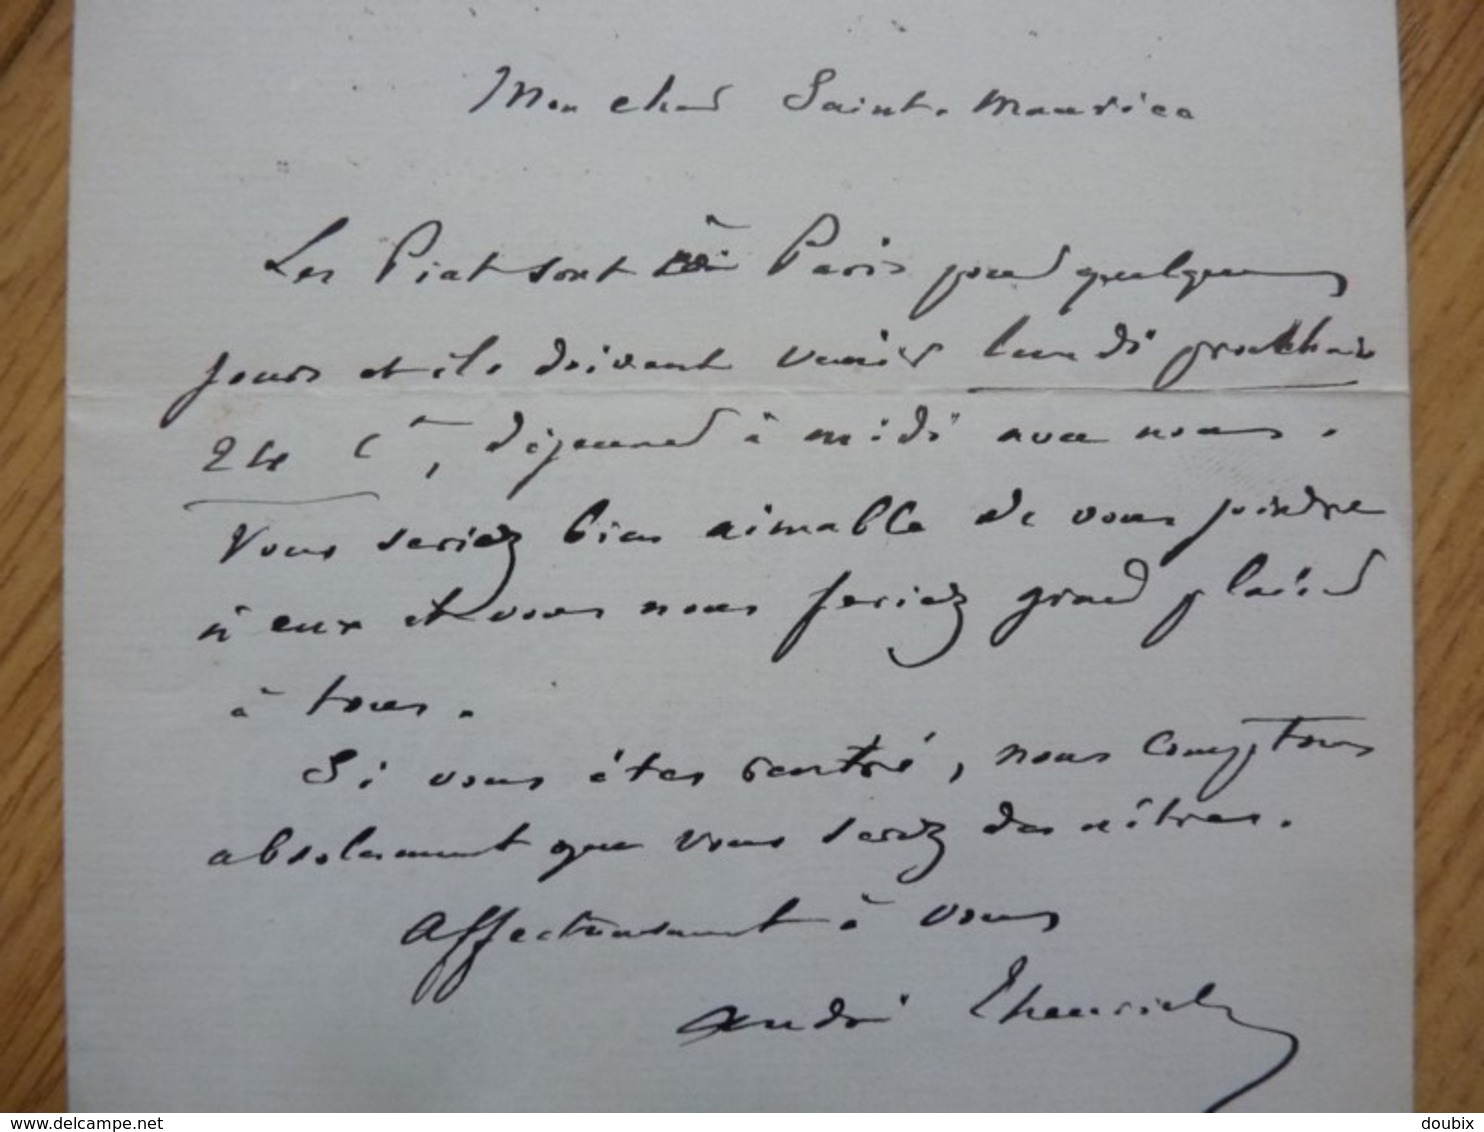 Mon cher Saint-Maurice
Les Piat sont à Paris pour quelques
jours et ils doivent venir lundi prochain
24 Ct, déjeuner à midi avec nous.
Vous seriez bien aimable de vous joindre
à eux et vous nous feriez grand plaisir
à tous.
Si vous êtes rentré, nous comptons
absolument que vous serez des nôtres.
Affectueusement à vous
André Theuriet
delcampe.net
doubix